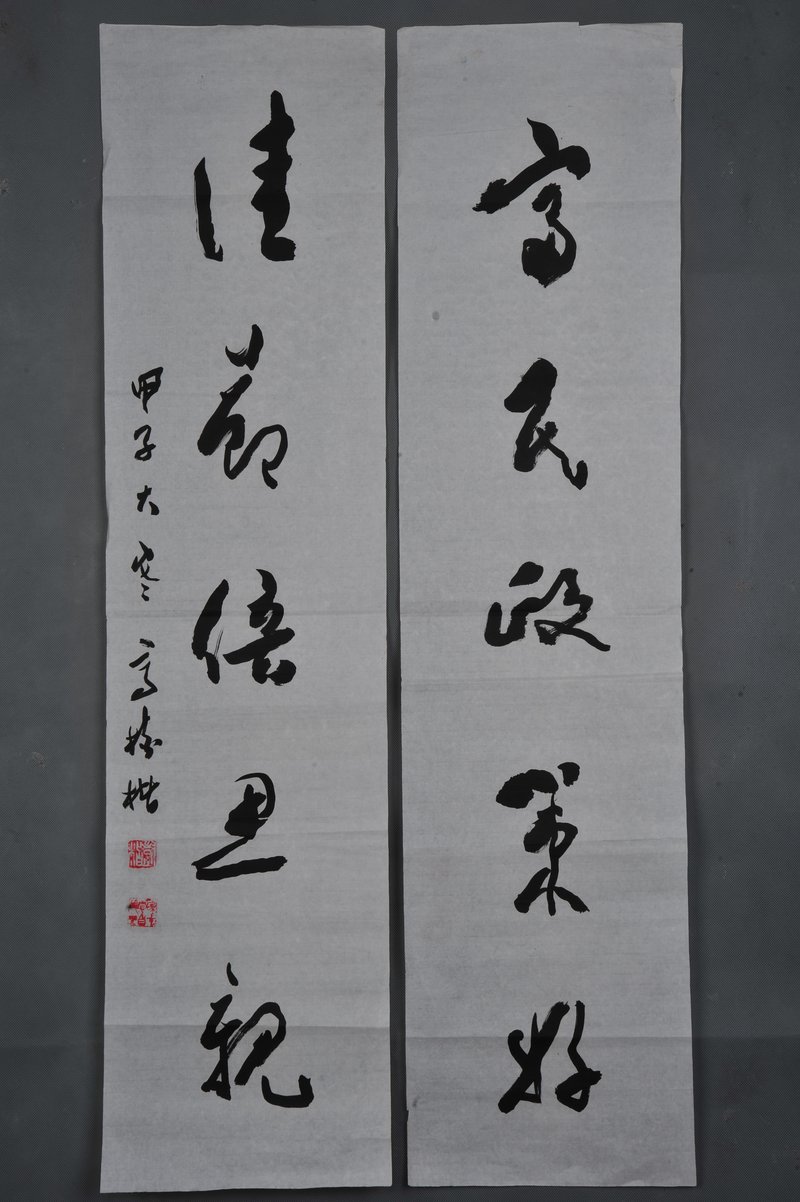 富民政策好
佳节倍思親
甲子大寒 高樹楷